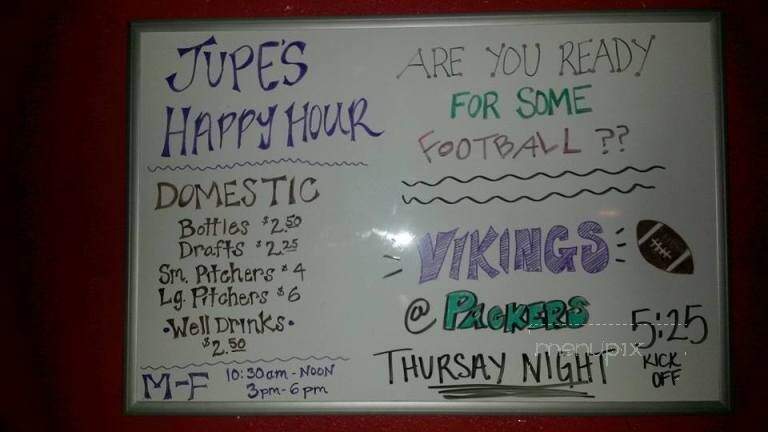 JUPE'S
HAPPY HOUR
DOMESTIC
Bottles $2.50
Drafts $2.25
Sm. Pitchers $4
Lg. Pitchers $6
•Well Drinks•
$2.50
M-F
10:30am - NOON
3pm-6pm
ARE YOU READY
FOR SOME
FOOTBALL ??
VIKINGS
@ PACKERS
THURSAY NIGHT
5:25
KICK
OFF
menupix